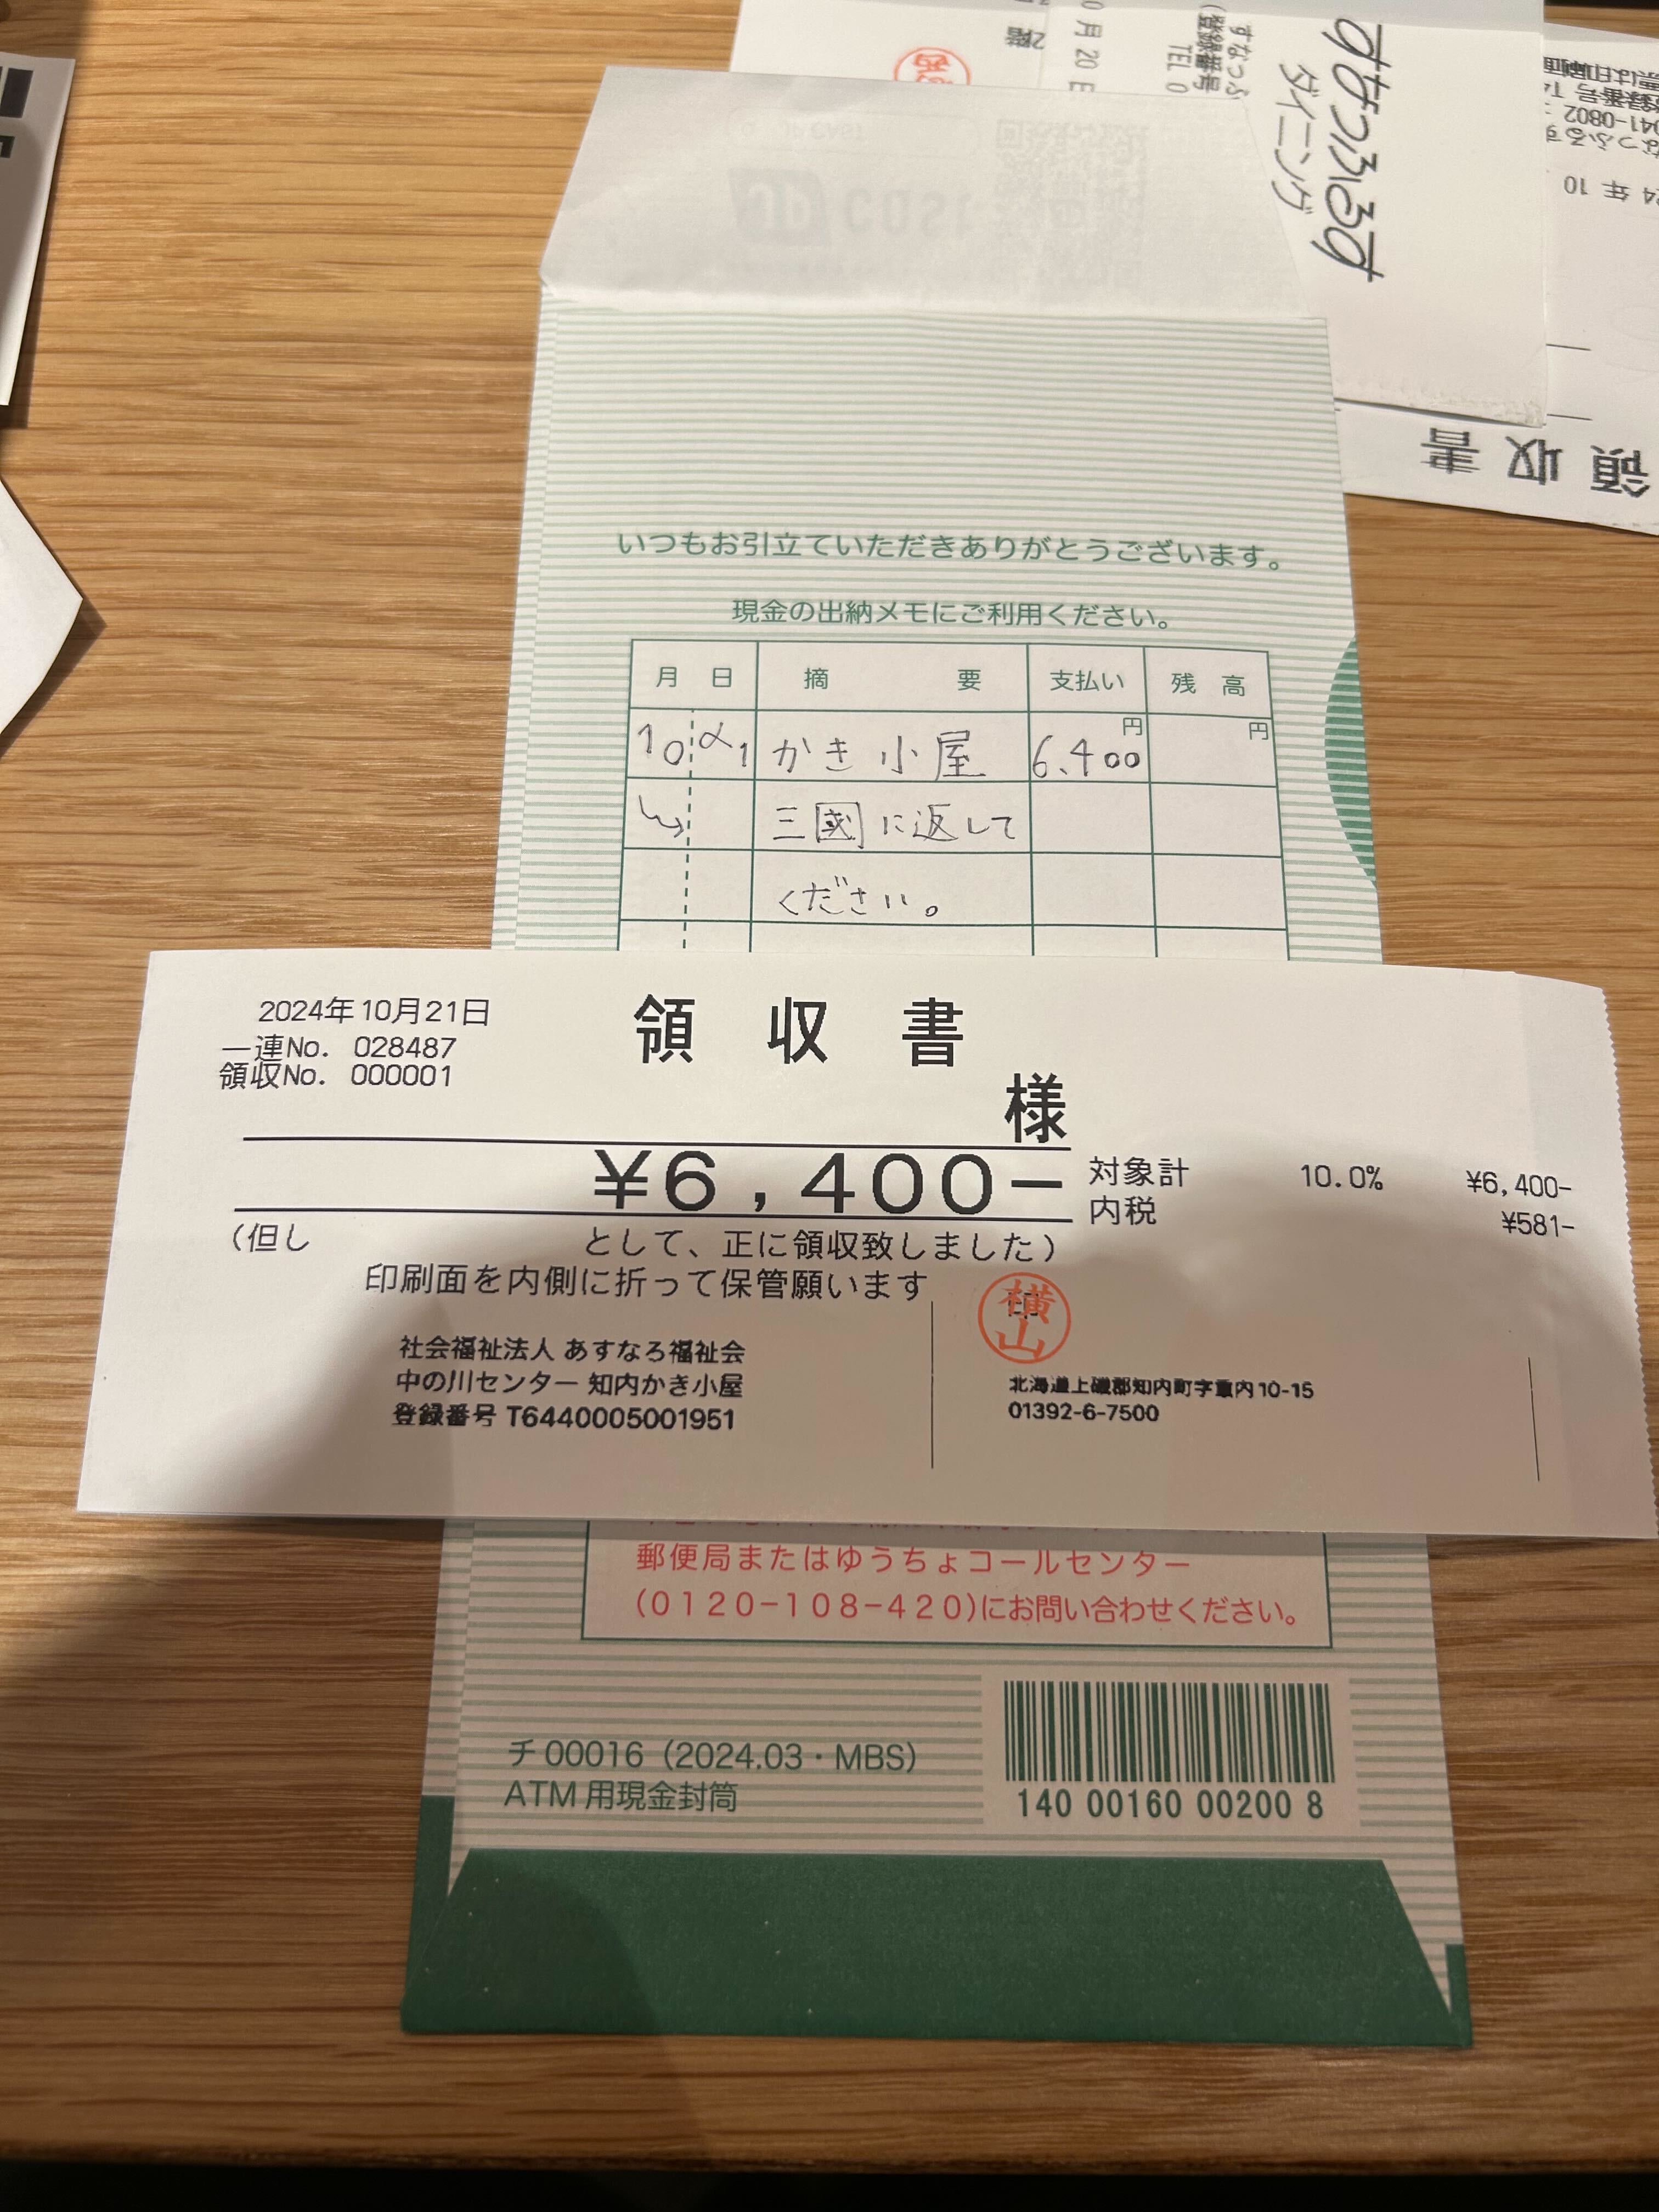 すなつふる
(登録番号
TEL 0
0 月 20 日
すなっふるす
ダイニング
041-0802
24 年 10
領収書
いつもお引立ていただきありがとうございます。
現金の出納メモにご利用ください。
月 日 摘 要 支払い 残 高
円 円
10 21 かき小屋 6.400
三國に返して
ください。
2024年10月21日
領収書
一連No. 028487
領収No. 000001
様
¥6,400-
対象計 10.0% ¥6,400-
内税 ¥581-
(但し として、正に領収致しました)
印刷面を内側に折って保管願います
印
横山
社会福祉法人 あすなろ福祉会
中の川センター 知内かき小屋
登録番号 T6440005001951
北海道上磯郡知内町字重内10-15
01392-6-7500
郵便局またはゆうちょコールセンター
(0120-108-420)にお問い合わせください。
チ00016(2024.03・MBS)
ATM用現金封筒
140 00160 00200 8